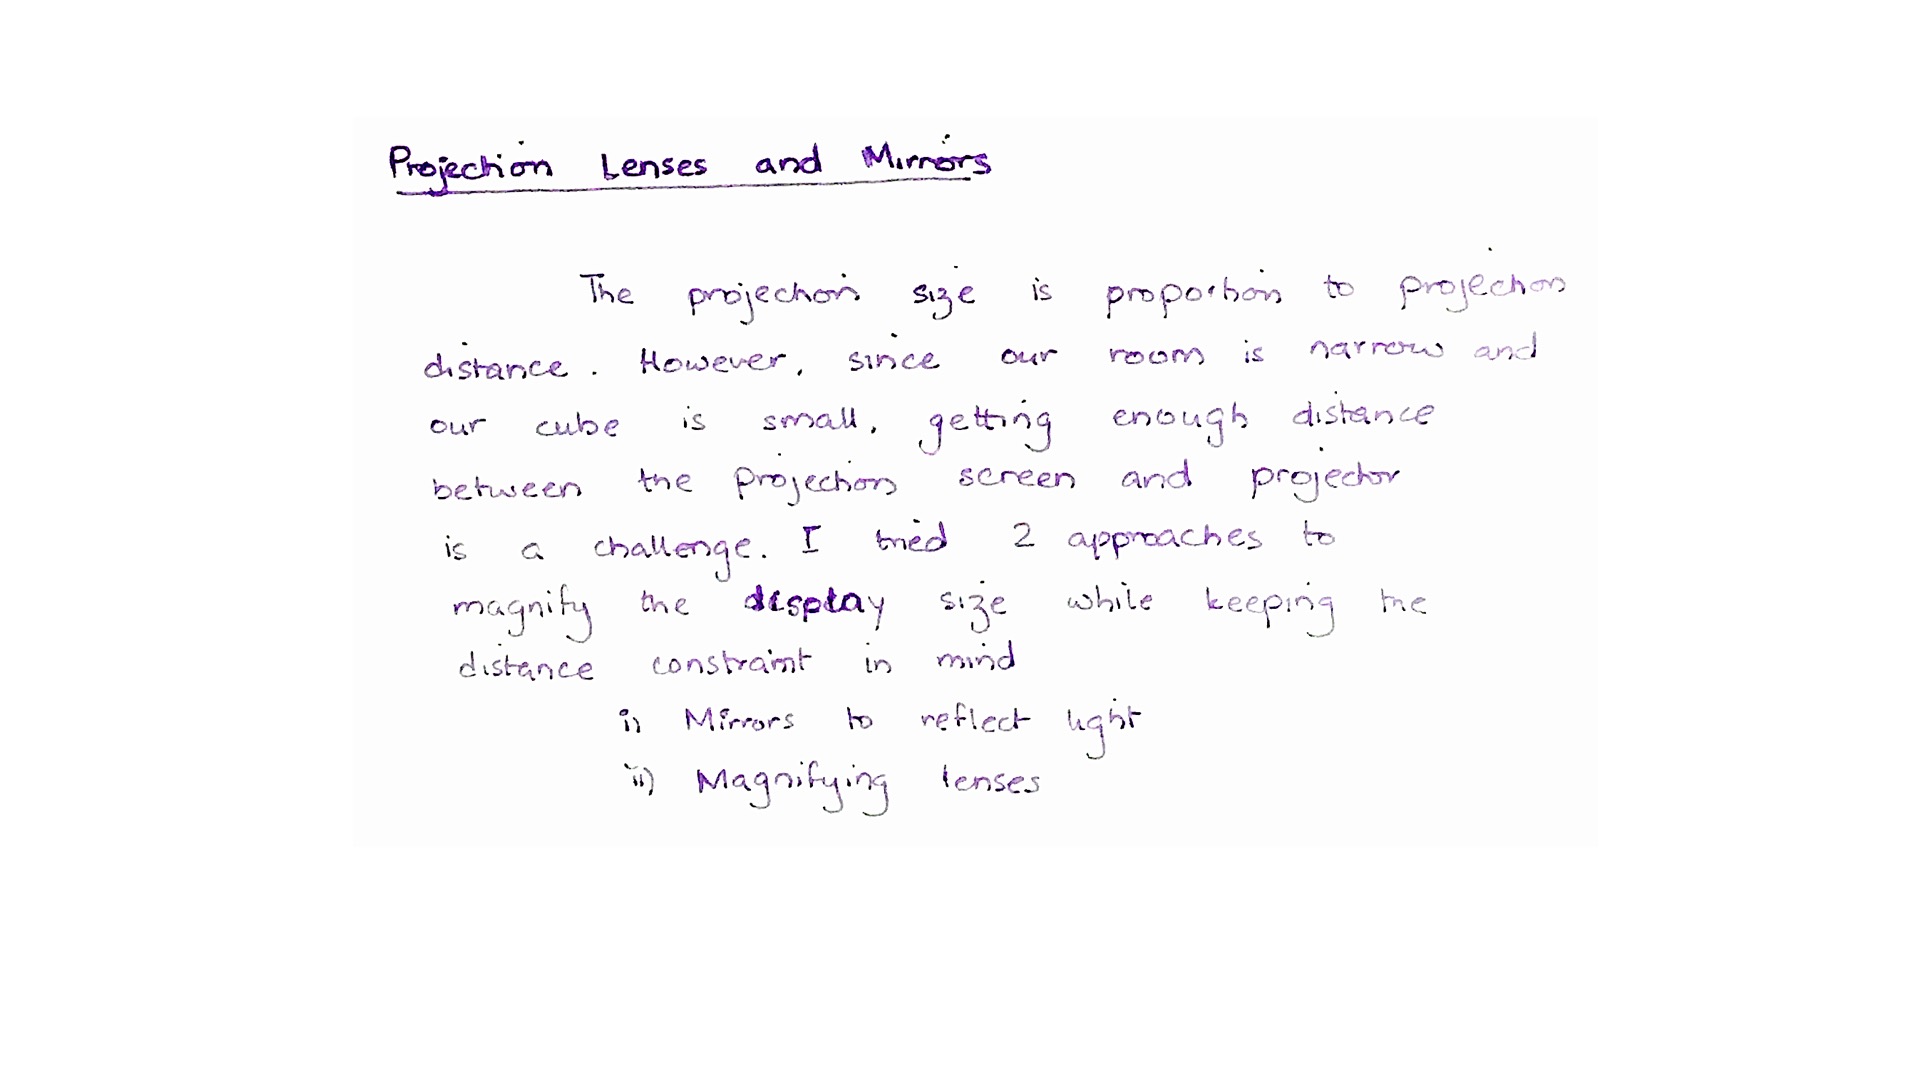 Projection Lenses and Mirrors
The projection size is proportion to projection
distance. However, since our room is narrow and
our cube is small, getting enough distance
between the projection screen and projector
is a challenge. I tried 2 approaches to
magnify the display size while keeping the
distance constraint in mind
i) Mirrors to reflect light
ii) Magnifying lenses